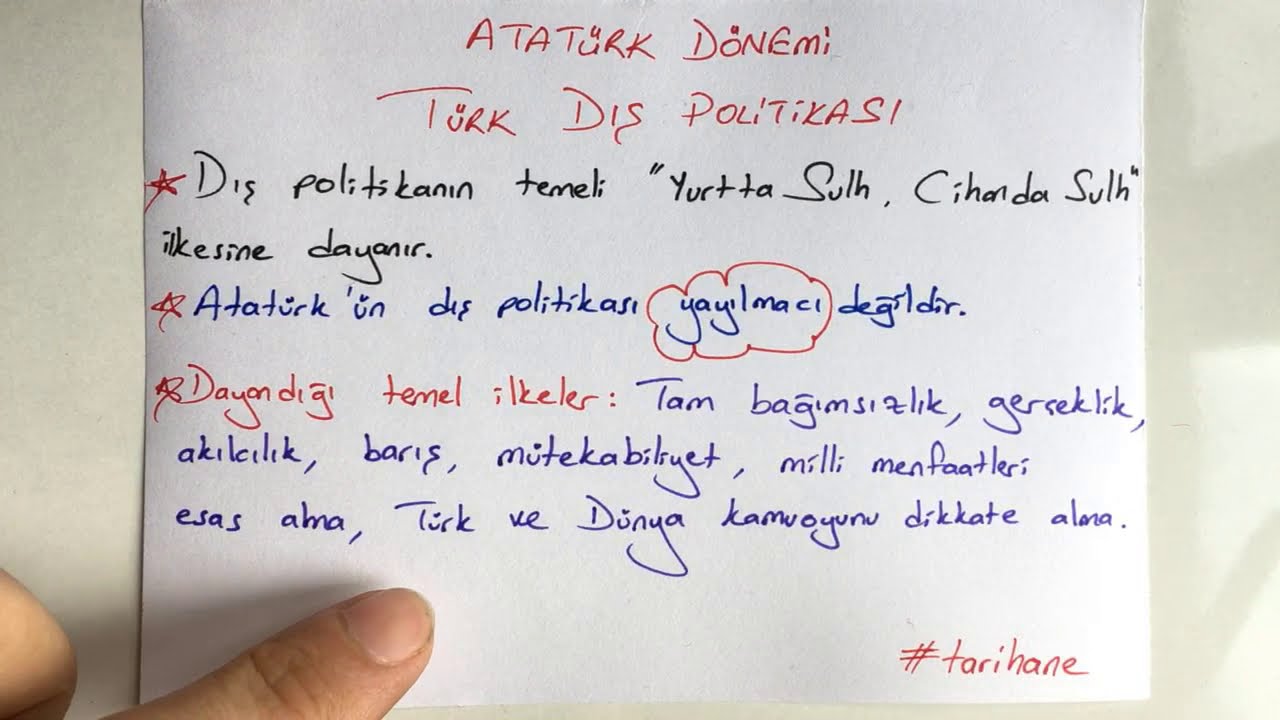 ATATÜRK DÖNEMİ
TÜRK DIŞ POLİTİKASI
★ Dış politikanın temeli "Yurtta Sulh, Cihanda Sulh"
ilkesine dayanır.
★ Atatürk'ün dış politikası yayılmacı değildir.
★ Dayandığı temel ilkeler: Tam bağımsızlık, gerçeklik,
akılcılık, barış, mütekabiliyet, milli menfaatleri
esas alma, Türk ve Dünya kamuoyunu dikkate alma.
#tarihane